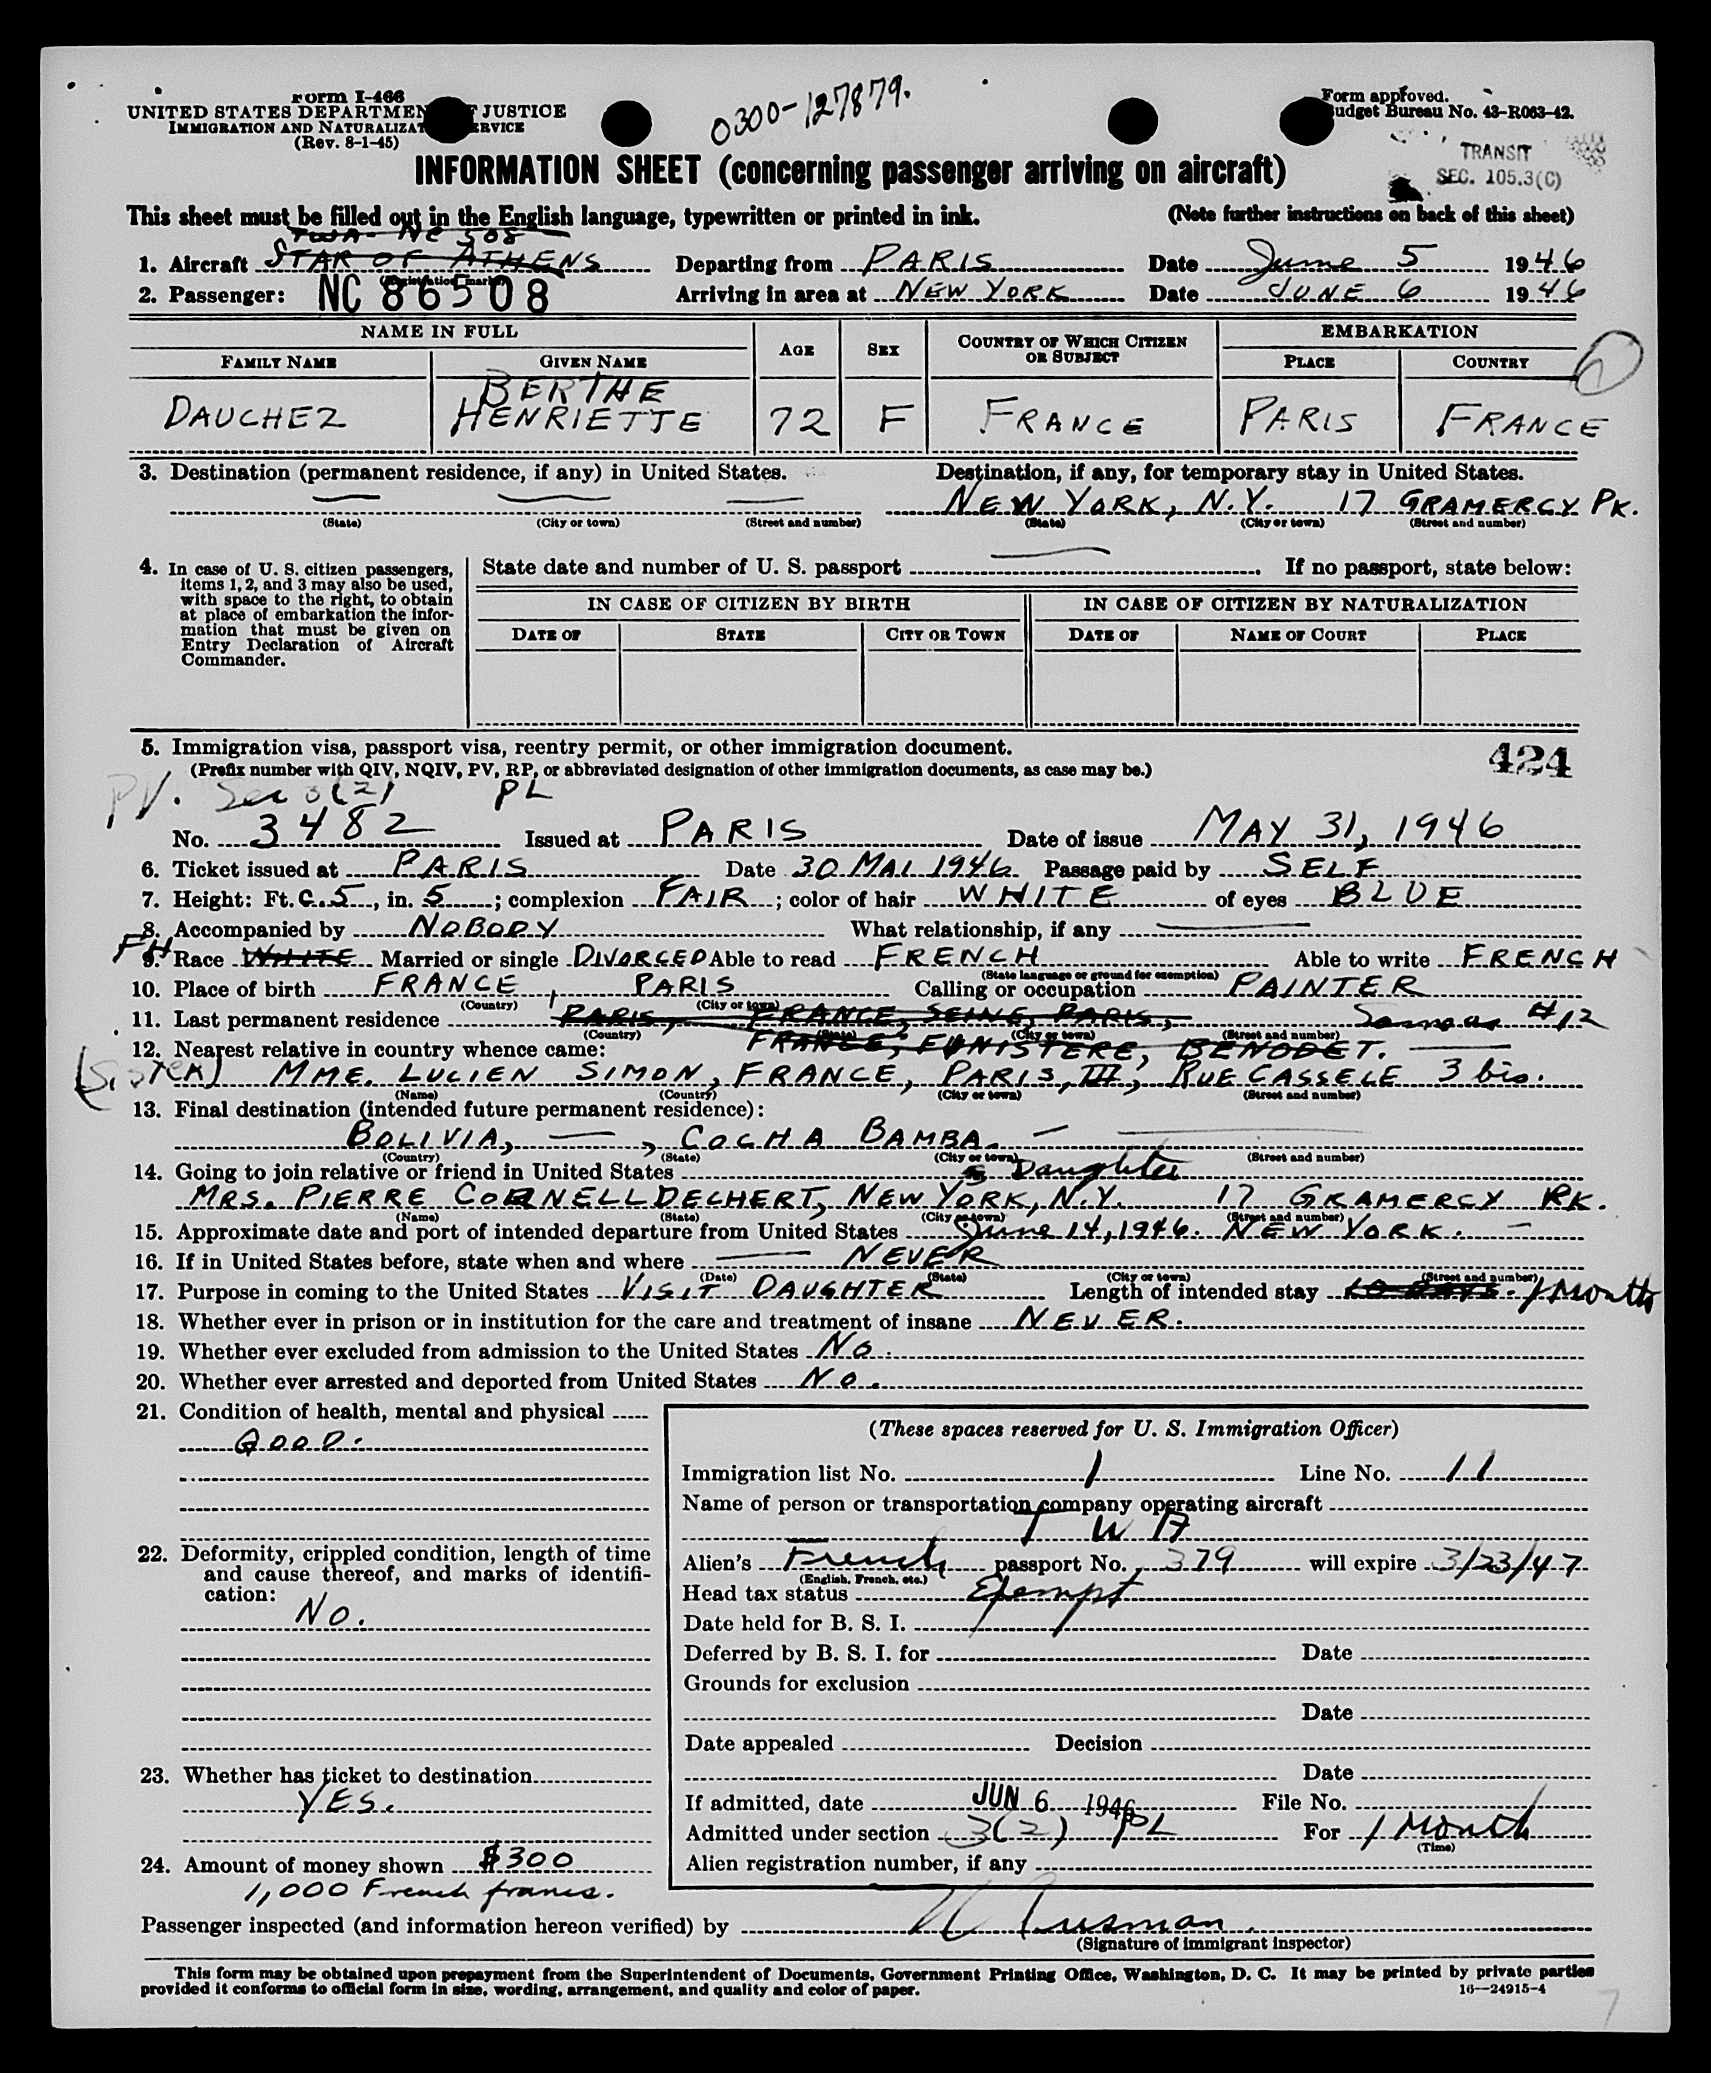 Form I-466
UNITED STATES DEPARTMENT OF JUSTICE
IMMIGRATION AND NATURALIZATION SERVICE
(Rev. 8-1-45)
0300-127879.
Form approved.
Budget Bureau No. 43-R063-42.
TRANSIT
SEC. 105.3(C)
INFORMATION SHEET (concerning passenger arriving on aircraft)
This sheet must be filled out in the English language, typewritten or printed in ink. (Note further instructions on back of this sheet)
TWA- NC 508
1. Aircraft STAR OF ATHENS Departing from PARIS Date June 5 1946
(Registration marks)
2. Passenger: NC 86508 Arriving in area at NEW YORK Date JUNE 6 1946
NAME IN FULL AGE SEX COUNTRY OF WHICH CITIZEN OR SUBJECT EMBARKATION
FAMILY NAME GIVEN NAME PLACE COUNTRY
BERTHE
DAUCHEZ HENRIETTE 72 F FRANCE PARIS FRANCE
3. Destination (permanent residence, if any) in United States. Destination, if any, for temporary stay in United States.
— — — NEW YORK, N.Y. 17 GRAMERCY PK.
(State) (City or town) (Street and number) (State) (City or town) (Street and number)
4. In case of U. S. citizen passengers, items 1, 2, and 3 may also be used, with space to the right, to obtain at place of embarkation the information that must be given on Entry Declaration of Aircraft Commander.
State date and number of U. S. passport — . If no passport, state below:
IN CASE OF CITIZEN BY BIRTH IN CASE OF CITIZEN BY NATURALIZATION
DATE OF STATE CITY OR TOWN DATE OF NAME OF COURT PLACE
5. Immigration visa, passport visa, reentry permit, or other immigration document. 424
(Prefix number with QIV, NQIV, PV, RP, or abbreviated designation of other immigration documents, as case may be.)
PV. Sec 3(2) PL
No. 3482 Issued at PARIS Date of issue MAY 31, 1946
6. Ticket issued at PARIS Date 30 MAI 1946 Passage paid by SELF
7. Height: Ft. 5, in. 5; complexion FAIR; color of hair WHITE of eyes BLUE
8. Accompanied by NOBODY What relationship, if any —
FH
9. Race WHITE Married or single DIVORCED Able to read FRENCH Able to write FRENCH
(State language or ground for exemption)
10. Place of birth FRANCE, PARIS Calling or occupation PAINTER
(Country) (City or town)
11. Last permanent residence PARIS, FRANCE, SEINE, PARIS, Same as #12
(Country) (State) (City or town) (Street and number)
12. Nearest relative in country whence came: FRANCE, FINISTERE, BENODET.
(Sister) MME. LUCIEN SIMON, FRANCE, PARIS, III, RUE CASSELE 3 bis.
(Name) (Country) (City or town) (Street and number)
13. Final destination (intended future permanent residence):
BOLIVIA, —, COCHA BAMBA. —
(Country) (State) (City or town) (Street and number)
14. Going to join relative or friend in United States Daughter
MRS. PIERRE CORNELL DECHERT, NEW YORK, N.Y. 17 GRAMERCY PK.
(Name) (State) (City or town) (Street and number)
15. Approximate date and port of intended departure from United States June 14, 1946. NEW YORK. —
16. If in United States before, state when and where — NEVER
(Date) (State) (City or town) (Street and number)
17. Purpose in coming to the United States VISIT DAUGHTER Length of intended stay 10 DAYS. 1 Month
18. Whether ever in prison or in institution for the care and treatment of insane NEVER.
19. Whether ever excluded from admission to the United States No.
20. Whether ever arrested and deported from United States No.
21. Condition of health, mental and physical
GOOD.
22. Deformity, crippled condition, length of time and cause thereof, and marks of identification:
NO.
23. Whether has ticket to destination
YES.
24. Amount of money shown $300
1,000 French francs.
(These spaces reserved for U. S. Immigration Officer)
Immigration list No. 1 Line No. 11
Name of person or transportation company operating aircraft
TWA
Alien's French passport No. 379 will expire 3/23/47
(English, French, etc.)
Head tax status Exempt
Date held for B. S. I.
Deferred by B. S. I. for Date
Grounds for exclusion
Date
Date appealed Decision
Date
If admitted, date JUN 6 1946 File No.
Admitted under section 3(2) PL For 1 Month
(Time)
Alien registration number, if any
Passenger inspected (and information hereon verified) by
(Signature of immigrant inspector)
This form may be obtained upon prepayment from the Superintendent of Documents, Government Printing Office, Washington, D. C. It may be printed by private parties
provided it conforms to official form in size, wording, arrangement, and quality and color of paper. 16—24915-4
7